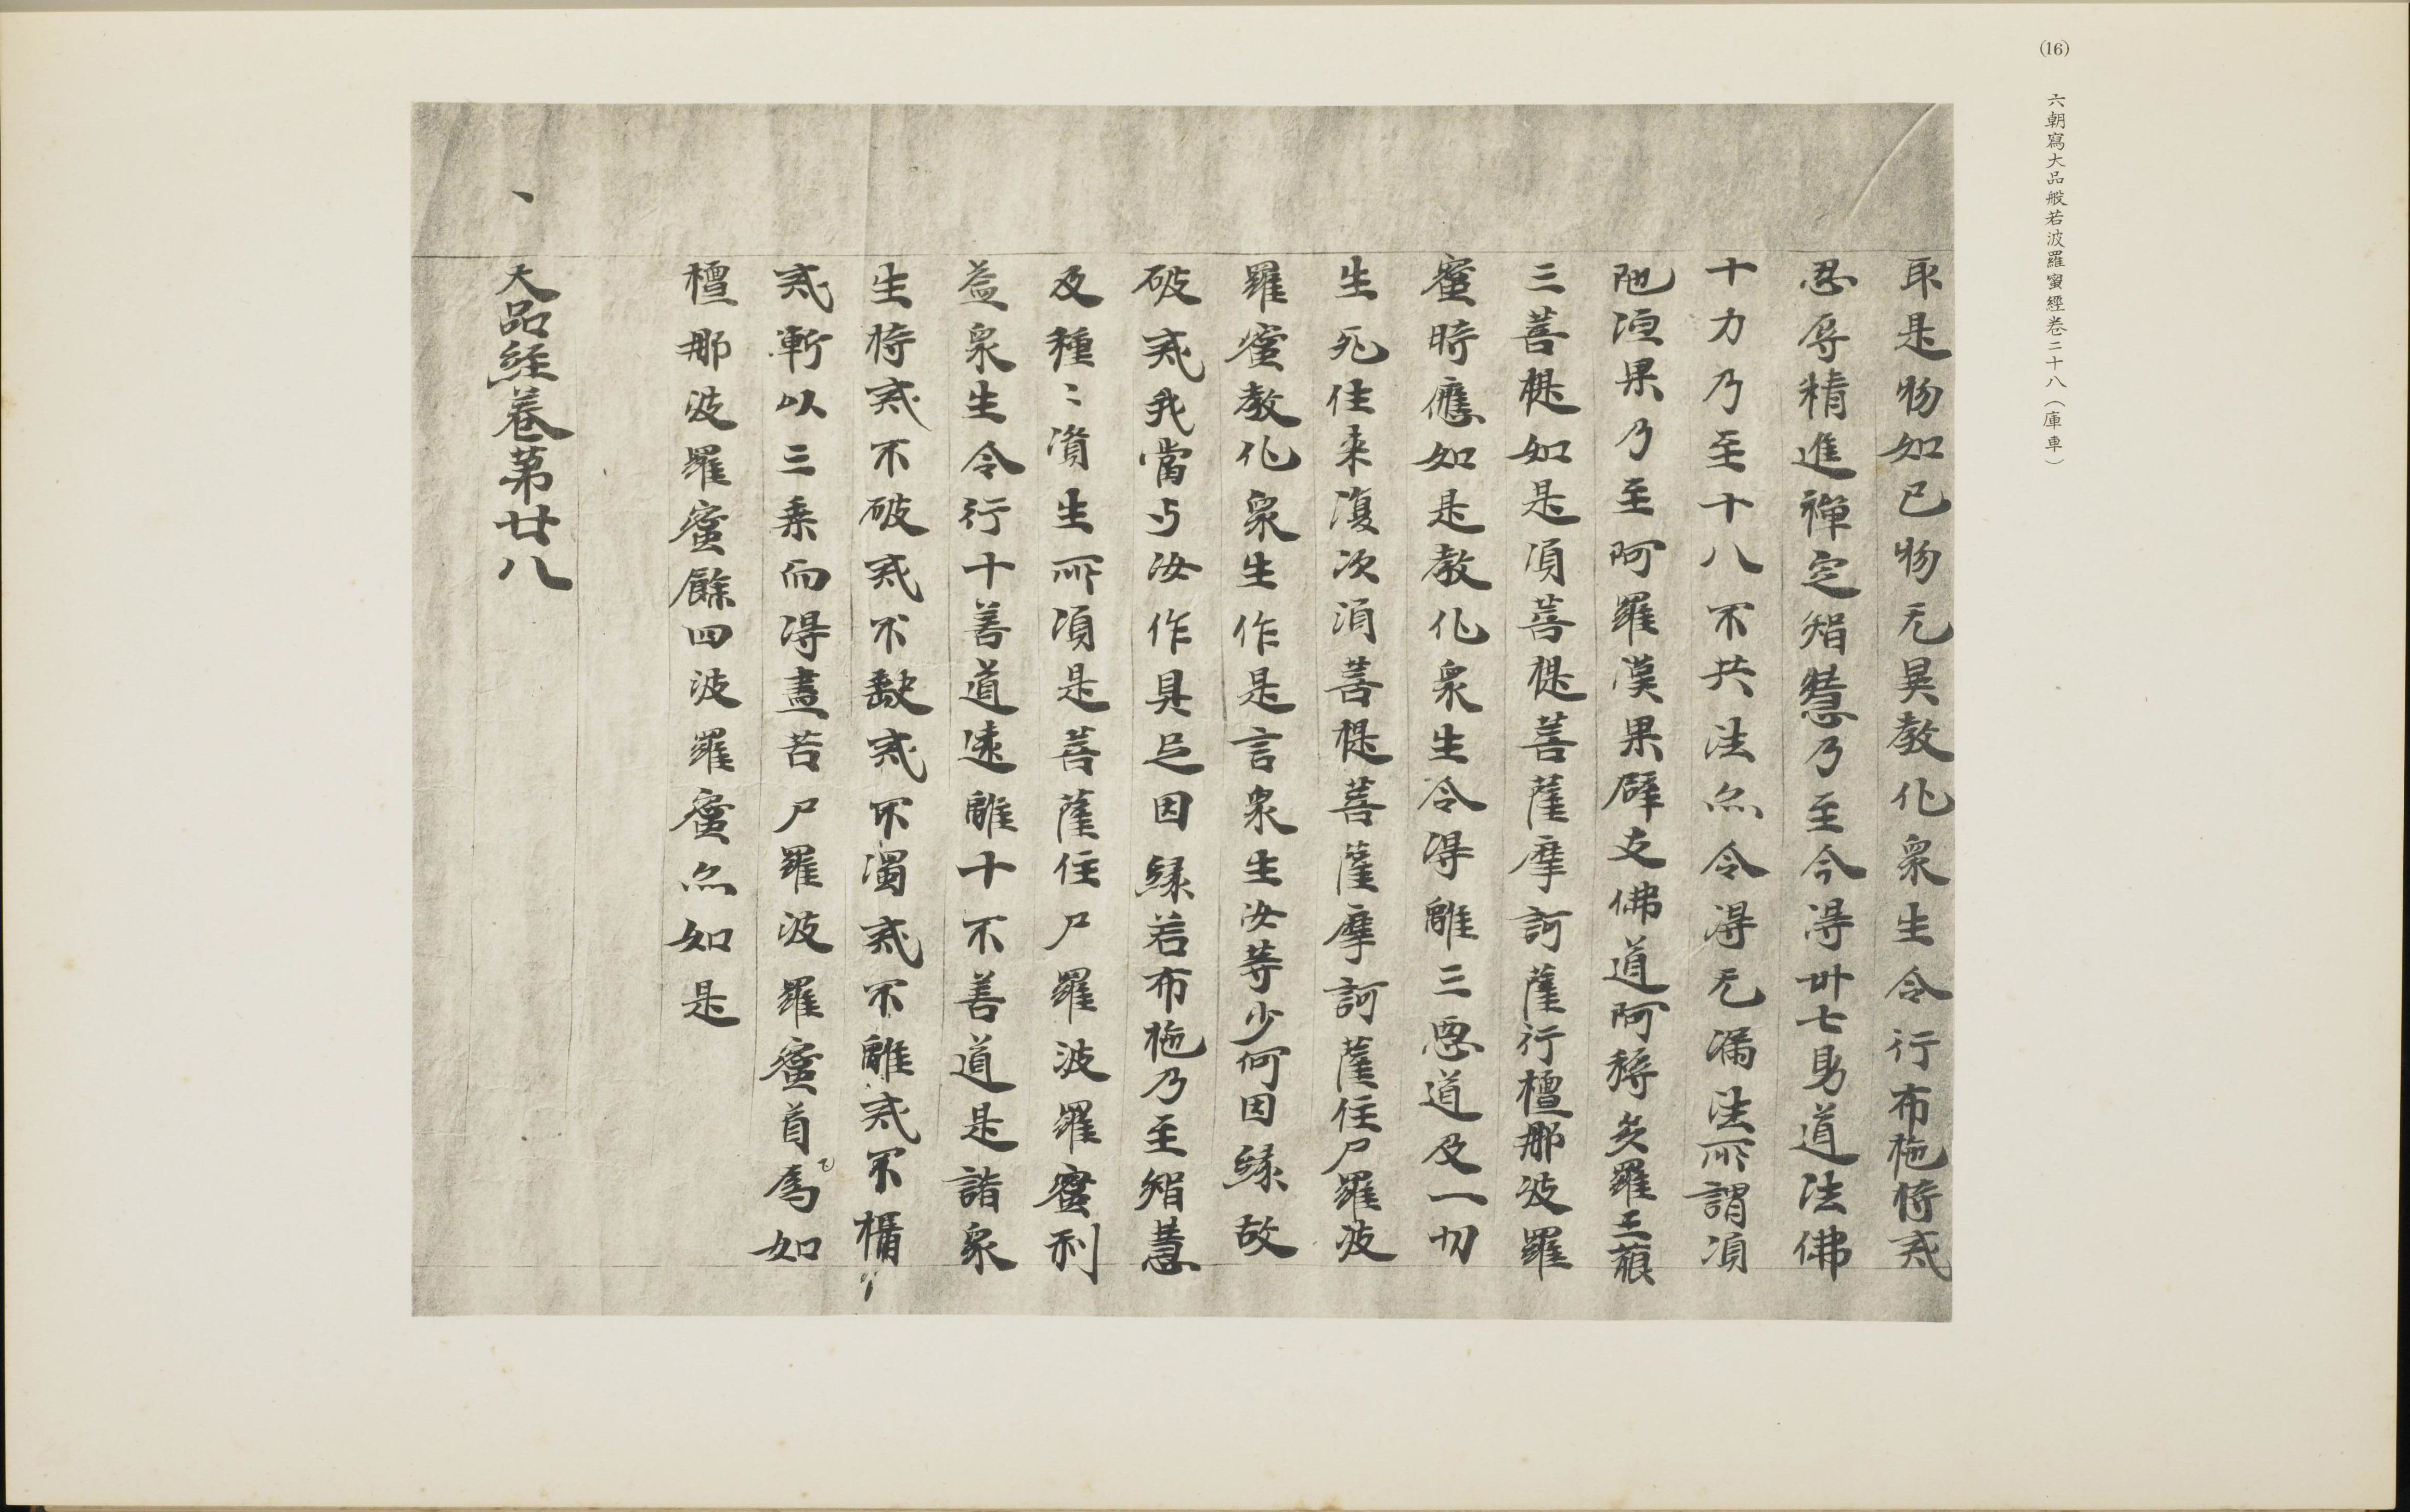 (16)
六朝寫大品般若波羅蜜經卷二十八(庫車)
取是物如已物无異教化衆生令行布施持戒
忍辱精進禪定智慧乃至令得卅七助道法佛
十力乃至十八不共法亦令得无漏法所謂須
陁洹果乃至阿羅漢果辟支佛道阿耨多羅三藐
三菩提如是須菩提菩薩摩訶薩行檀那波羅
蜜時應如是教化衆生令得離三惡道及一切
生死往来復次須菩提菩薩摩訶薩住尸羅波
羅蜜教化衆生作是言衆生汝等少何因緣故
破戒我當与汝作具足因緣若布施乃至智慧
及種〻資生所須是菩薩住尸羅波羅蜜利
益衆生令行十善道遠離十不善道是諸衆
生持戒不破戒不缺戒不濁戒不離戒不楯
戒漸以三乘而得盡苦尸羅波羅蜜首為如
檀那波羅蜜餘四波羅蜜亦如是
大品經卷第廿八